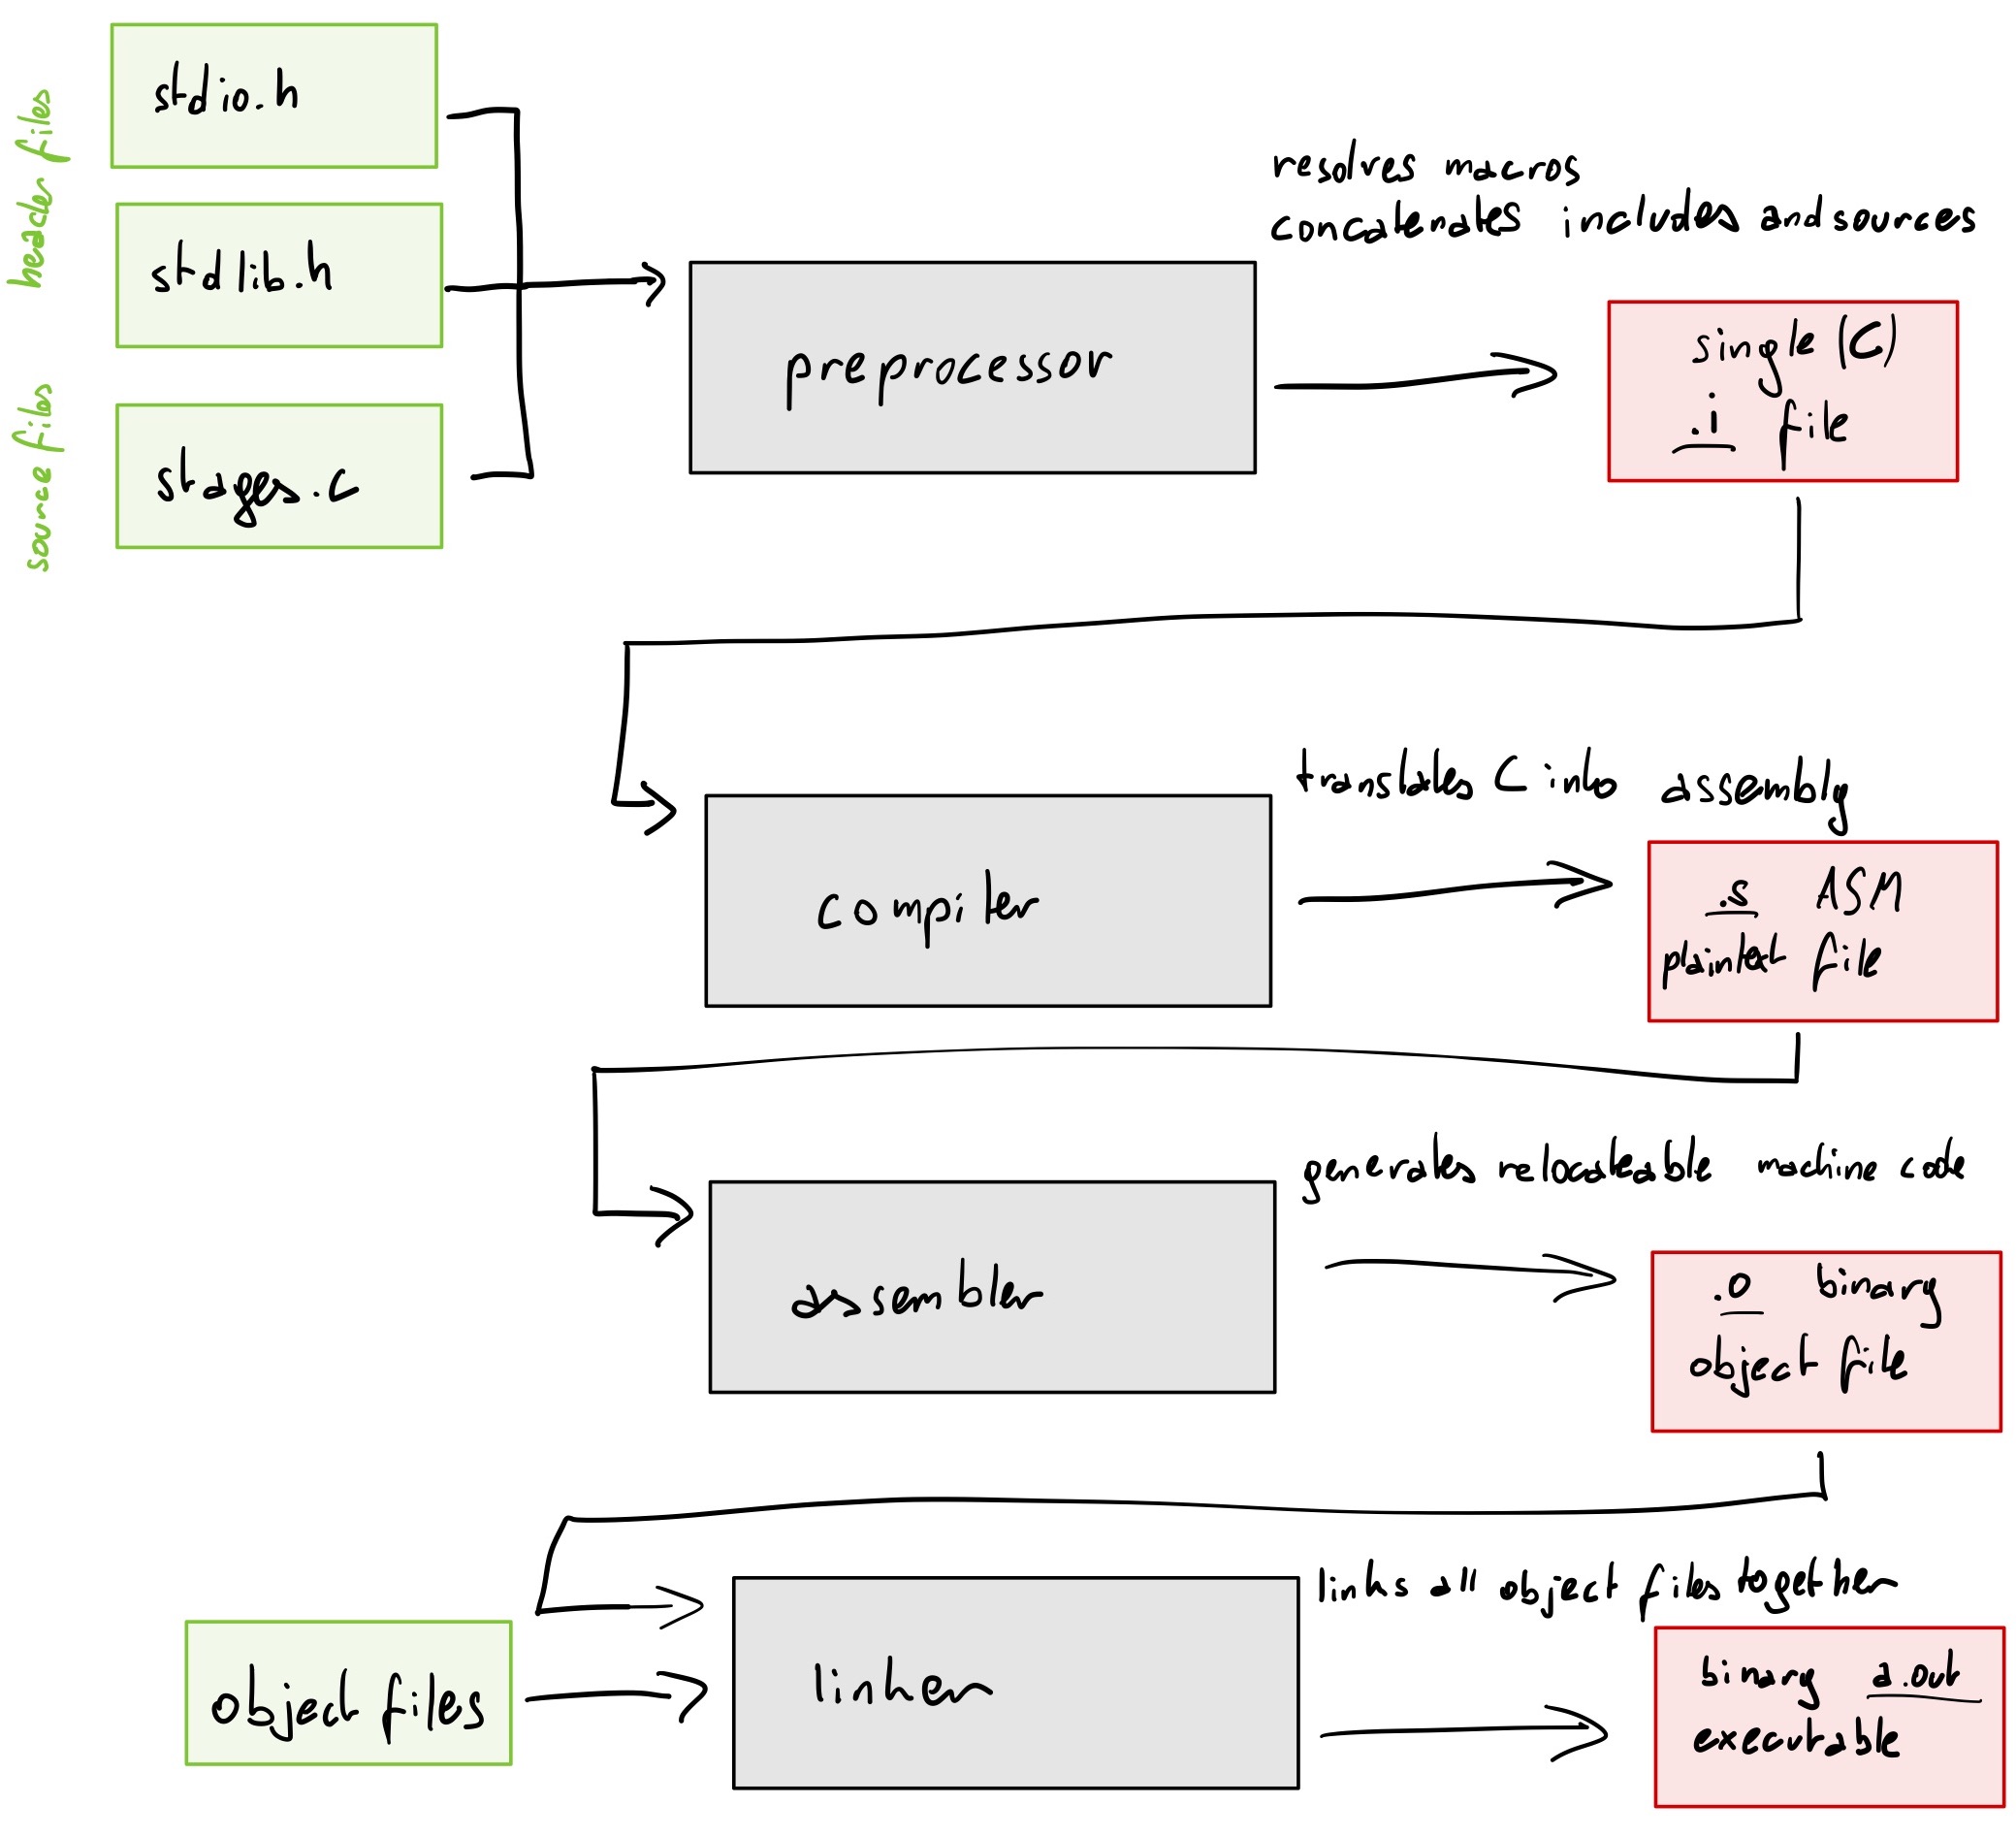 header files
stdio.h
stdlib.h
source files
stages.c
preprocessor
resolves macros
concatenates includes and sources
single (C)
.i file
compiler
translates C into assembly
.s ASM
plaintext file
assembler
generates relocateable machine code
.o binary
object file
object files
linker
links all object files together
binary a.out
executable